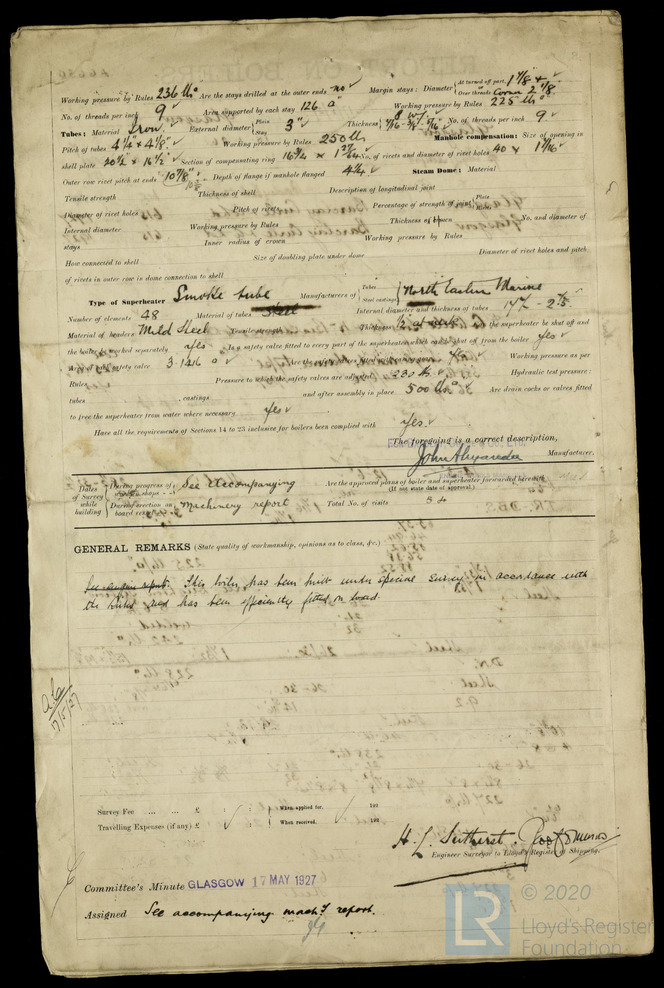 Working pressure by Rules 236 lbs Are the stays drilled at the outer ends no Margin stays: Diameter { At turned off part, 1 7/8" + or Over threads
No. of threads per inch 9 Area supported by each stay 126 Working pressure by Rules 225 lbs
Tubes: Material Iron External diameter { Plain Stay 3" Thickness No. of threads per inch 9
Pitch of tubes 4 1/4" x 4 1/8" Working pressure by Rules 250 lbs Manhole compensation: Size of opening in
shell plate 20 1/2 x 16 1/2" Section of compensating ring No. of rivets and diameter of rivet holes 40 x 1 7/16
Outer row rivet pitch at ends 10 7/8" Depth of flange if manhole flanged Steam Dome: Material
Tensile strength Thickness of shell Description of longitudinal joint
Diameter of rivet holes Pitch of rivets Percentage of strength of joint { Plate Rivets
Internal diameter Working pressure by Rules Thickness of crown No. and diameter of
stays Inner radius of crown Working pressure by Rules
How connected to shell Size of doubling plate under dome Diameter of rivet holes and pitch
of rivets in outer row in dome connection to shell
Type of Superheater Smoke tube Manufacturers of { Tubes Steel castings North Eastern Marine
Number of elements 48 Material of tubes Internal diameter and thickness of tubes
Material of headers Mild Steel Tensile strength Thickness Can the superheater be shut off and
the boiler be worked separately yes Is a safety valve fitted to every part of the superheater which can be shut off from the boiler yes
Area of each safety valve 3.146 Are the safety valves fitted with easing gear yes Working pressure as per
Rules Pressure to which the safety valves are adjusted 230 lbs Hydraulic test pressure:
tubes castings and after assembly in place 500 lbs Are drain cocks or valves fitted
to free the superheater from water where necessary yes
Have all the requirements of Sections 14 to 23 inclusive for boilers been complied with yes
The foregoing is a correct description,
John Alexander Manufacturer.
Dates of Survey while building { During progress of work in shops - - See Accompanying Are the approved plans of boiler and superheater forwarded herewith
(If not state date of approval.)
During erection on board vessel - - - Machinery report Total No. of visits 54
GENERAL REMARKS (State quality of workmanship, opinions as to class, &c.)
This boiler has been built under special survey in accordance with
the Rules and has been efficiently fitted on board.
17/5/27
Survey Fee ... ... £ : : When applied for, 192
Travelling Expenses (if any) £ : : When received, 192
H. L. Sutherst.
Engineer Surveyor to Lloyd's Register of Shipping.
Committee's Minute GLASGOW 17 MAY 1927
Assigned See accompanying machy report.
LR © 2020
Lloyd's Register
Foundation